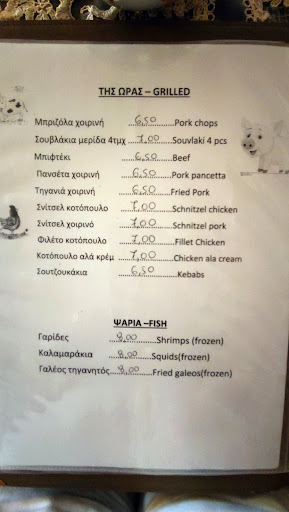 ΤΗΣ ΩΡΑΣ – GRILLED
Μπριζόλα χοιρινή ......6,50......Pork chops
Σουβλάκια μερίδα 4τμχ ...7,00......Souvlaki 4 pcs
Μπιφτέκι ......6,50......Beef
Πανσέτα χοιρινή ......6,50......Pork pancetta
Τηγανιά χοιρινή ......6,50......Fried Pork
Σνίτσελ κοτόπουλο ......7,00......Schnitzel chicken
Σνίτσελ χοιρινό ......7,00......Schnitzel pork
Φιλέτο κοτόπουλο ......7,00......Fillet Chicken
Κοτόπουλο αλά κρέμ ...7,00......Chicken ala cream
Σουτζουκάκια ......6,50......Kebabs
ΨΑΡΙΑ –FISH
Γαρίδες ......8,00......Shrimps (frozen)
Καλαμαράκια ......8,00......Squids(frozen)
Γαλέος τηγανητός....8,00......Fried galeos(frozen)